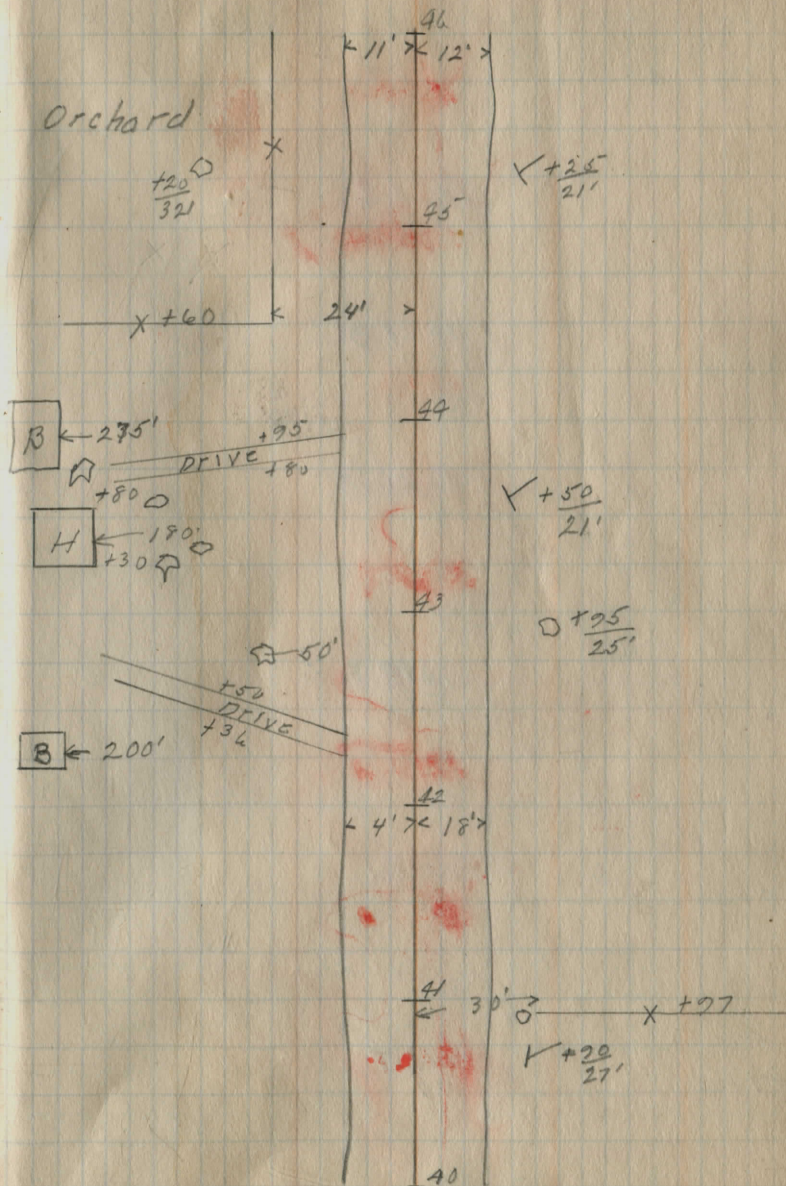 46
11' 12'
Orchard
+20
32'
+25
21'
45
24'
+60
44
B 275'
+95
Drive
+80
+80
+50
21'
H 180'
+30
43
+95
25'
50'
+50
Drive
+36
B 200'
42
4' 18'
41
30'
+97
+90
27'
40